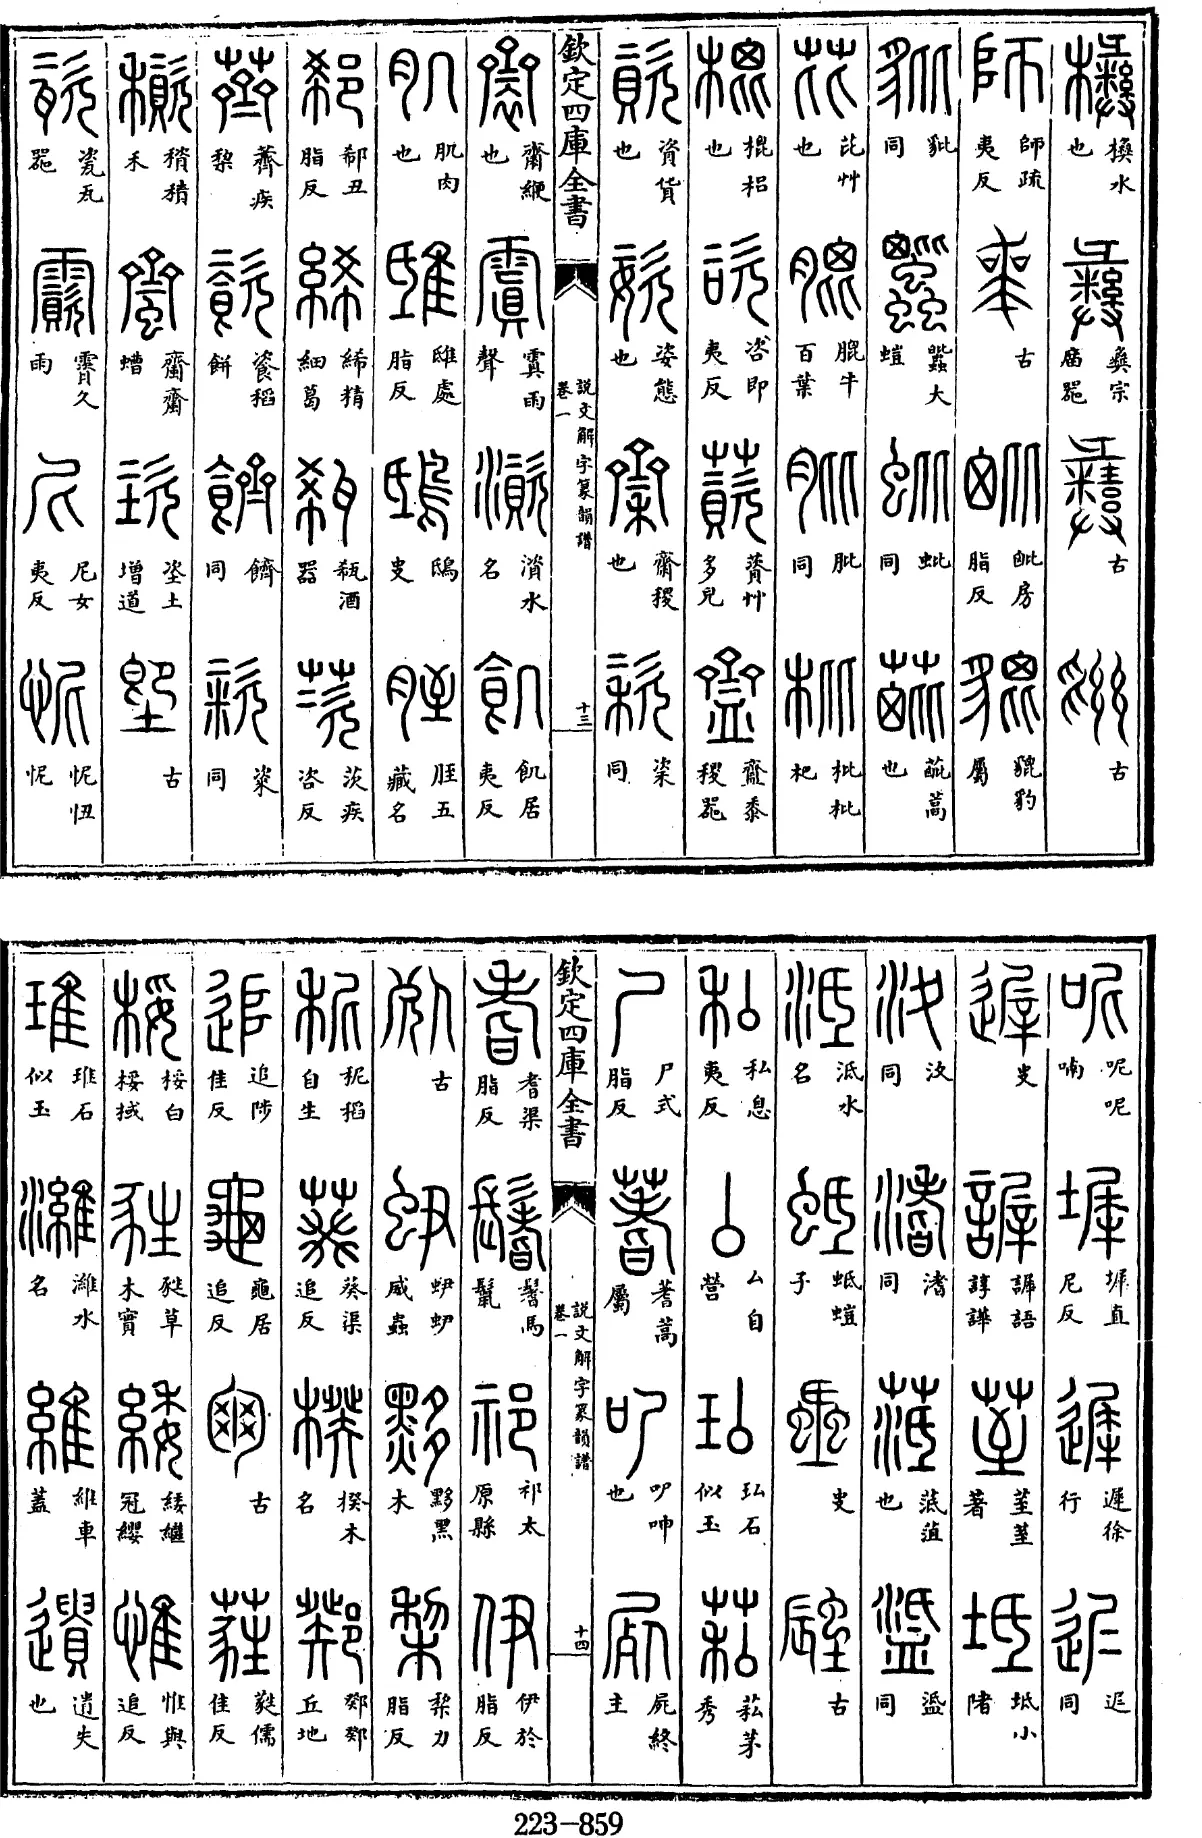 㰘㰘水也 彝彝宗廟器 古 古
師師疏夷反 古 毗房脂反 貔豹屬
豼同 蠶大螘 蚍同 蓖蒿也
芘芘艸也 膍牛百葉 肶同 枇枇杷
榥梠也 咨咨即夷反 薋薋艸多皃 齍黍稷器
資資貨也 姿姿態也 齋稷也 粢同
欽定四庫全書
說文解字篆韻譜
卷一
十三
齌緶也 䨏雨聲 澬澬水名 飢飢居夷反
肌肌肉也 雎雎處脂反 鴟鴟史 胵胵五藏名
郗郗丑脂反 絺絺精細葛 瓻瓻酒器 茨茨疾咨反
薺薺疾棃 餈餈稻餅 䭣同 粢同
穧穧積禾 齏齏螬 垐垐土增道 堲古
瓷瓷瓦器 霣霣久雨 尼尼女夷反 怩怩忸
呢呢呢喃 墀墀直尼反 遲遲徐行 迟同
遟史 謘謘語諄譁 荎荎荎著 坻坻小陼
汷同 渚同 菭菭菹也 䀋同
泜泜水名 蚳蚳螘子 史 古
私私息夷反 厶厶自營 玜玜石似玉 菘茅秀
尸尸式脂反 蓍蓍蒿屬 吚吚呻也 屍屍終主
欽定四庫全書
說文解字篆韻譜
卷一
十四
耆耆渠脂反 鬐鬐馬鬣 祁祁太原縣 伊伊於脂反
古 蛜蛜蛜威蟲 黟黟黑木 棃棃力脂反
秜秜稻自生 葵葵渠追反 楑楑木名 鄈鄈鄈丘地
追追陟隹反 龜龜居追反 古 蕤蕤儒隹反
桵桵白桵棫 甤甤草木實 緌緌繼冠纓 惟惟與追反
琟琟石似玉 濰濰水名 維維車蓋 遺遺失也
223-859